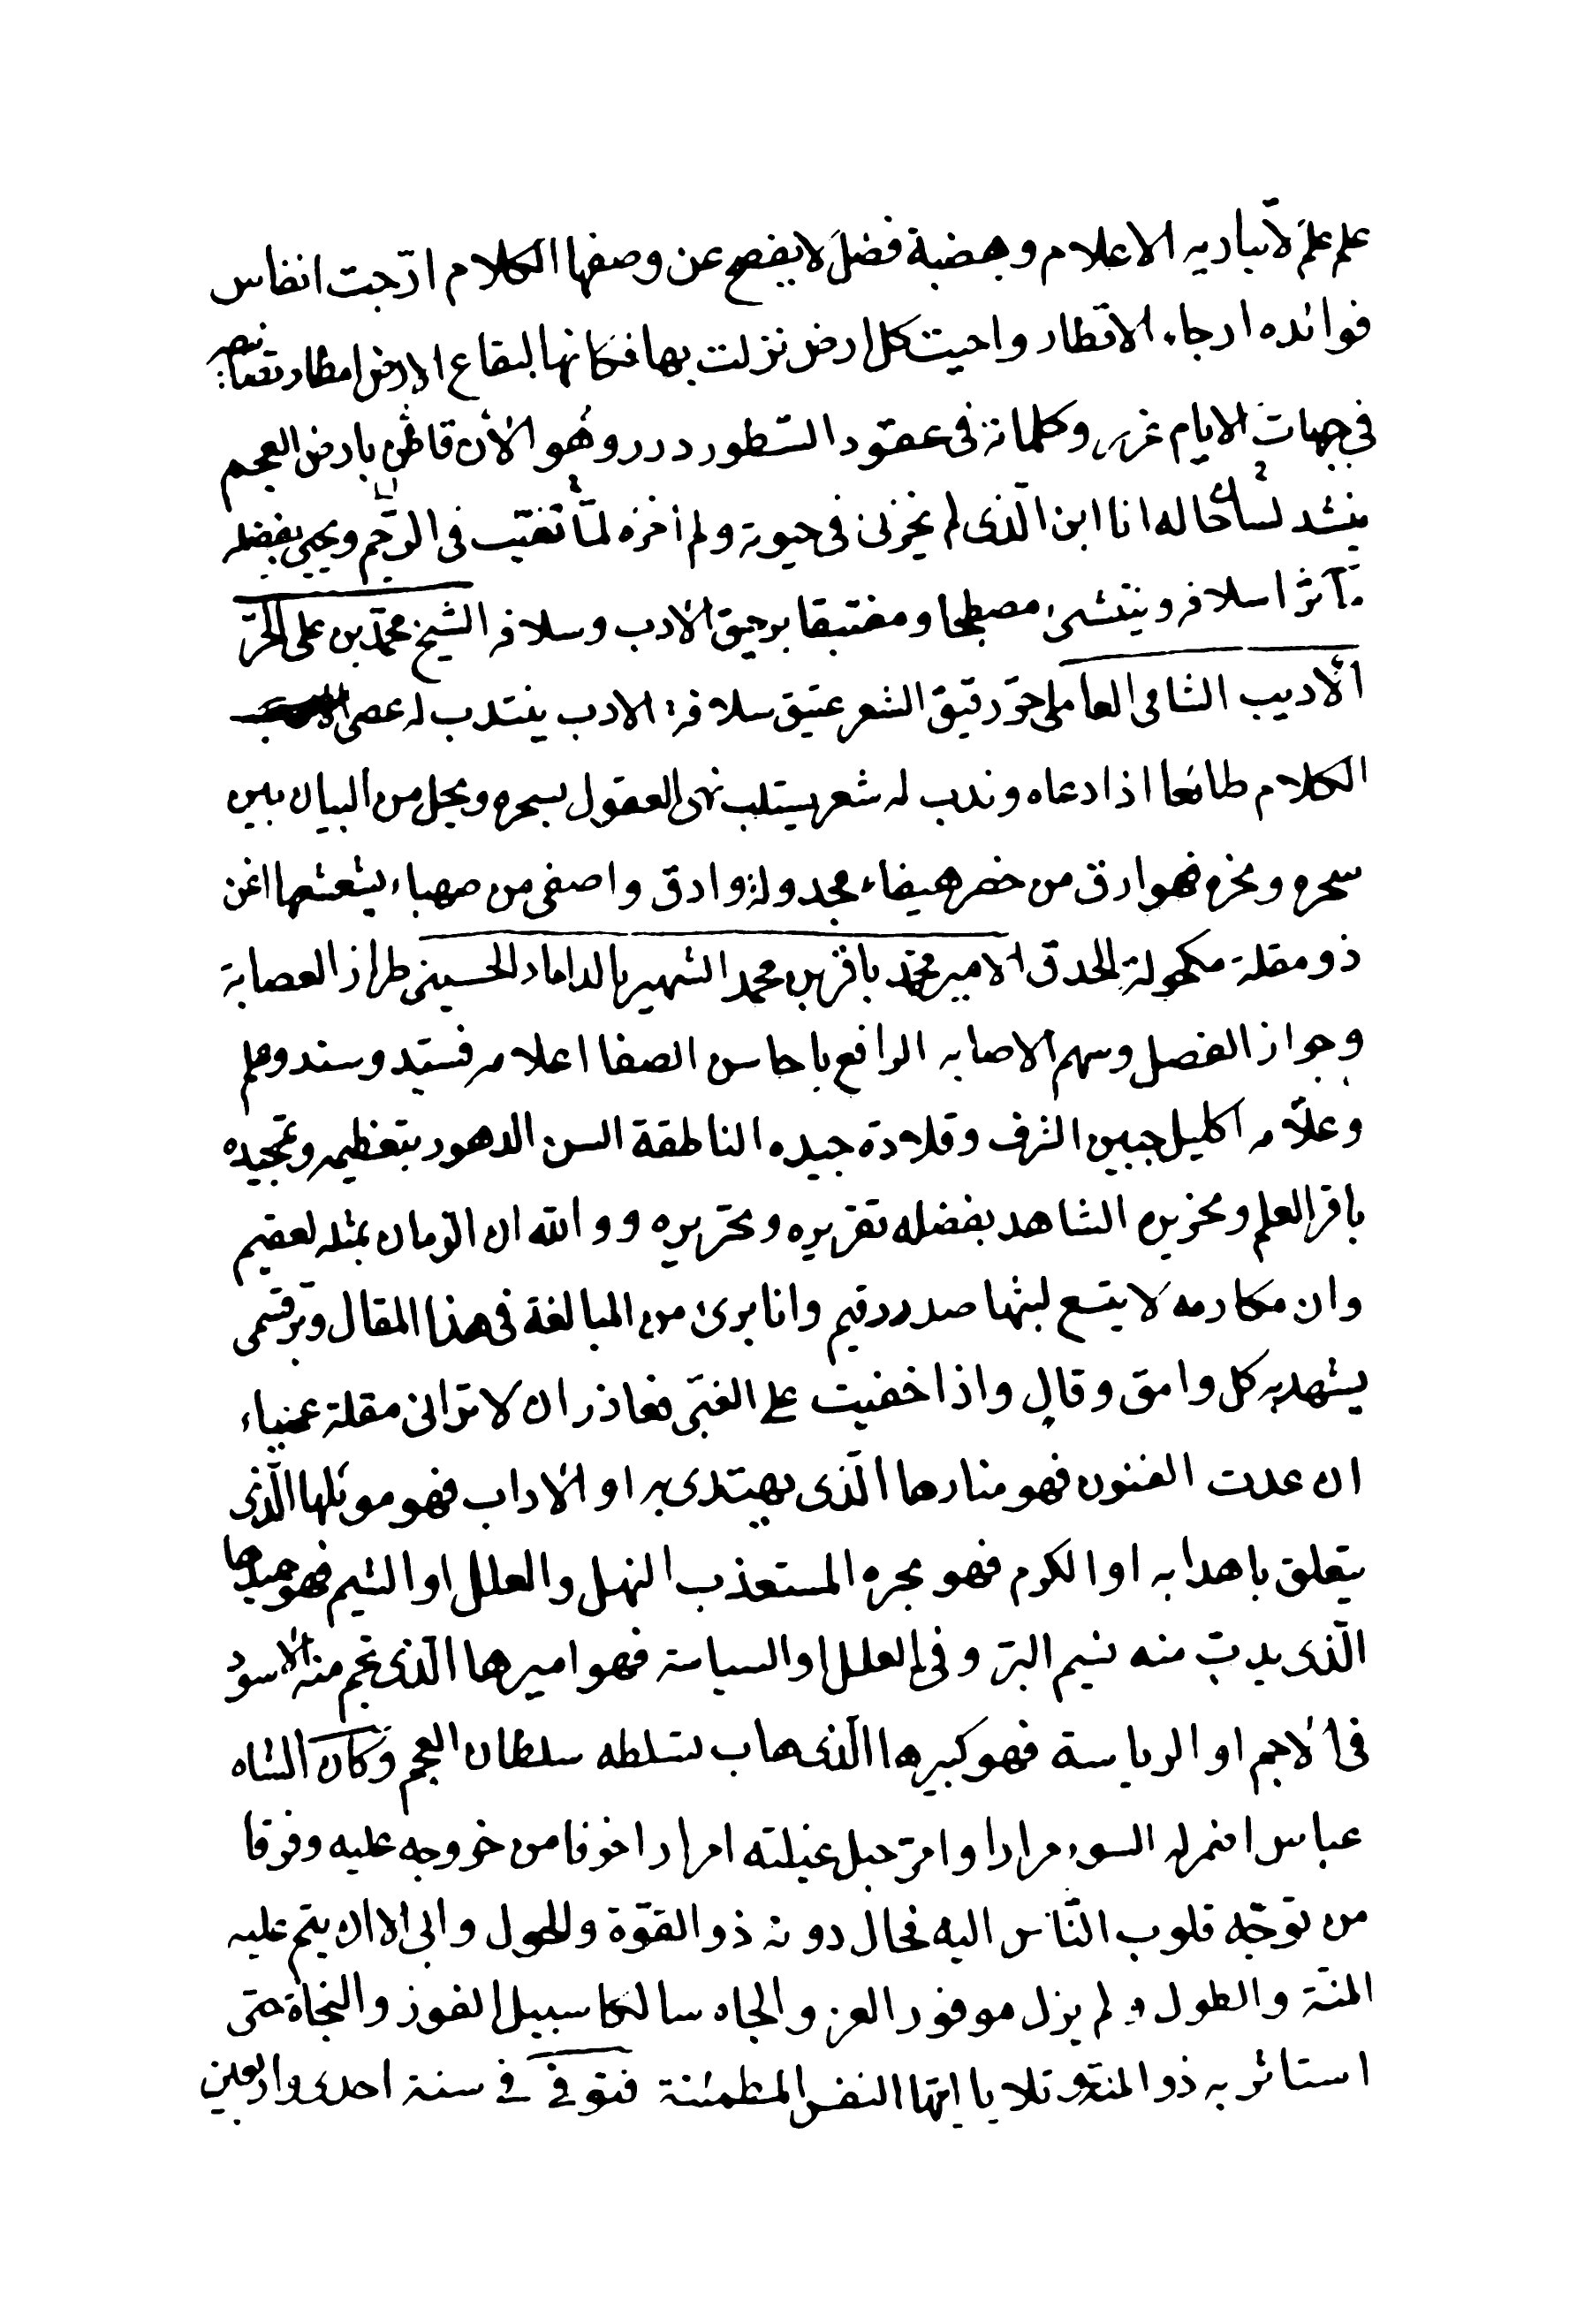 علم علم لا تباريه الاعلام وهضبة فضل لا يفصح عن وصفها الكلام ارّجت انفاس
فوائده ارجاء الاقطار واحيت كل ارض نزلت بها فكانها لبقاع الارض امطار تصانيفه
فى جبهات الايام غرر وكلماته فى عقود السّطور درر وهو الآن قاطن بارض العجم
ينشد لسان حاله انا ابن الّذى لم يخزنى فى حيوته ولم اخزه لمّا تغيّب فى الرّجم ويحيى بفضله
مآثر اسلافه وينتشى مصطبحا ومغتبقا برحيق الادب وسلافه الشيخ محمّد بن على الحرّ
الأديب الشامى العاملى حرّ رقيق الشعر عتيق سلافة الادب ينتدب له عصى
الكلام طائعا اذا دعاه وندب له شعر يستلب نهى العقول بسحره ويحل من البيان بين
سحره ونحره فهو ارق من خصر هيفاء مجدولة وادق واصفى من صهباء يشعشعها اغن
ذو مقلة مكحولة الحدق الامير محمّد باقر بن محمد الشهير بالداماد الحسينى طراز العصابة
وجواز الفضل وسهم الاصابه الرافع باحاسن الصفا اعلامه فسيّد وسند وعلم
وعلّامه اكليل جبين الشرف وقلادة جيده الناطقة السن الدهور بتعظيمه وتمجيده
باقر العلم ونحريره الشاهد بفضله تقريره وتحريره و والله ان الزمان بمثله لعقيم
وان مكارمه لا يتسع لبثها صدر رقيم وانا برئ من المبالغة فى هذا المقال وبرّ قسمى
يشهد به كل وامق وقال واذا خفيت على الغبّى فعاذر ان لا ترانى مقلة عمياء
ان عدت الفنون فهو منارها الّذى يهتدى به او الاداب فهو موئلها الّذى
يتعلق باهدابه او الكرم فهو بحره المستعذب النهل والعلل او الشيم فهو حميدها
الّذى يدبّ منه نسيم البرّ و فى العلل او السياسة فهو اميرها الّذى تجم منه الاسود
فى الاجم او الرياسة فهو كبيرها الّذى هاب تسلطه سلطان العجم وكان الشاه
عباس اضمر له السوء مرارا وامرّ حبل غيلته امرارا خوفا من خروجه عليه وفرقا
من توجّه قلوب النّاس اليه فحال دونه ذو القوّة والحول وابى الا ان يتم عليه
المنّة والطول ولم يزل موفور العز والجاه سالكا سبيل الفوز والنجاة حتى
استاثر به ذو المنة وتلا يا ايتها النفس المطمئنة فتوفى فى سنة احدى واربعين